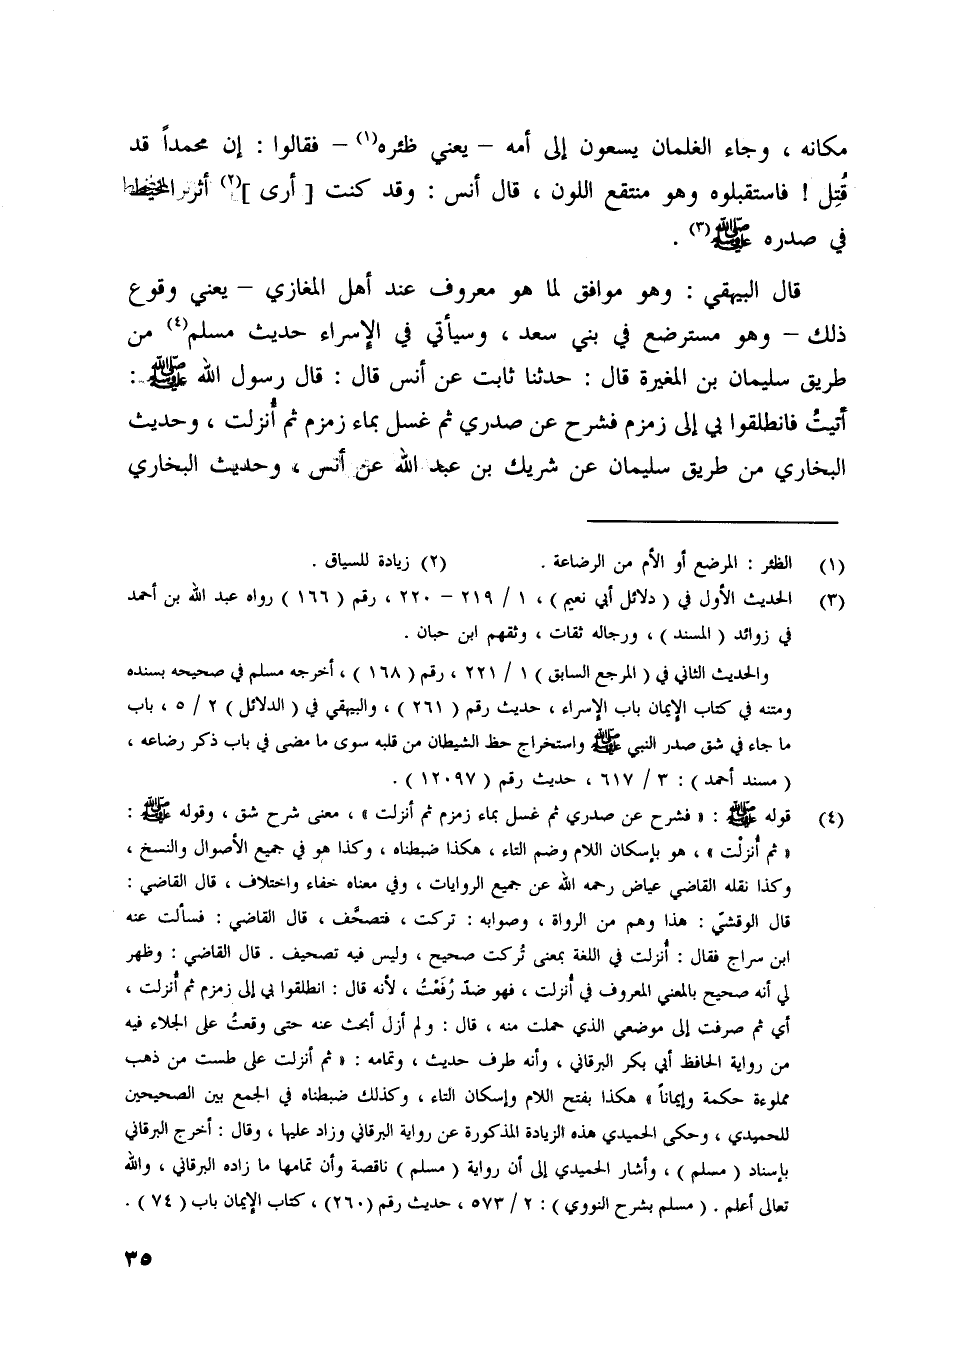 مكانه ، وجاء الغلمان يسعون إلى أمه – يعني ظئره(١) – فقالوا : إن محمداً قد
قُتِل ! فاستقبلوه وهو منتقع اللون ، قال أنس : وقد كنت [ أرى ](٢) أثر المخيط
في صدره ﷺ(٣) .
قال البيهقي : وهو موافق لما هو معروف عند أهل المغازي – يعني وقوع
ذلك – وهو مسترضع في بني سعد ، وسيأتي في الإسراء حديث مسلم(٤) من
طريق سليمان بن المغيرة قال : حدثنا ثابت عن أنس قال : قال رسول الله ﷺ :
أتيتُ فانطلقوا بي إلى زمزم فشرح عن صدري ثم غسل بماء زمزم ثم أُنزلت ، وحديث
البخاري من طريق سليمان عن شريك بن عبد الله عن أنس ، وحديث البخاري
(١) الظئر : المرضع أو الأم من الرضاعة . (٢) زيادة للسياق .
(٣) الحديث الأول في ( دلائل أبي نعيم ) ، ١ / ٢١٩ – ٢٢٠ ، رقم ( ١٦٦ ) رواه عبد الله بن أحمد
في زوائد ( المسند ) ، ورجاله ثقات ، وثقهم ابن حبان .
والحديث الثاني في ( المرجع السابق ) ١ / ٢٢١ ، رقم ( ١٦٨ ) ، أخرجه مسلم في صحيحه بسنده
ومتنه في كتاب الإيمان باب الإسراء ، حديث رقم ( ٢٦١ ) ، والبيهقي في ( الدلائل ) ٢ / ٥ ، باب
ما جاء في شق صدر النبي ﷺ واستخراج حظ الشيطان من قلبه سوى ما مضى في باب ذكر رضاعه ،
( مسند أحمد ) : ٣ / ٦١٧ ، حديث رقم ( ١٢٠٩٧ ) .
(٤) قوله ﷺ : « فشرح عن صدري ثم غسل بماء زمزم ثم أنزلت » ، معنى شرح شق ، وقوله ﷺ :
« ثم أُنزلْت » ، هو بإسكان اللام وضم التاء ، هكذا ضبطناه ، وكذا هو في جميع الأصوال والنسخ ،
وكذا نقله القاضي عياض رحمه الله عن جميع الروايات ، وفي معناه خفاء واختلاف ، قال القاضي :
قال الوقشيّ : هذا وهم من الرواة ، وصوابه : تركت ، فتصحَّف ، قال القاضي : فسألت عنه
ابن سراج فقال : أُنزلت في اللغة بمعنى تُركت صحيح ، وليس فيه تصحيف . قال القاضي : وظهر
لي أنه صحيح بالمعني المعروف في أُنزلت ، فهو ضدّ رُفَعْتُ ، لأنه قال : انطلقوا بي إلى زمزم ثم أُنزلت ،
أي ثم صرفت إلى موضعي الذي حملت منه ، قال : ولم أزل أبحث عنه حتى وقعتُ على الجلاء فيه
من رواية الحافظ أبي بكر البرقاني ، وأنه طرف حديث ، وتمامه : « ثم أنزلت على طست من ذهب
مملوءة حكمة وإيماناً » هكذا بفتح اللام وإسكان التاء ، وكذلك ضبطناه في الجمع بين الصحيحين
للحميدي ، وحكى الحميدي هذه الزيادة المذكورة عن رواية البرقاني وزاد عليها ، وقال : أخرج البرقاني
بإسناد ( مسلم ) ، وأشار الحميدي إلى أن رواية ( مسلم ) ناقصة وأن تمامها ما زاده البرقاني ، والله
تعالى أعلم . ( مسلم بشرح النووي ) : ٢ / ٥٧٣ ، حديث رقم (٢٦٠) ، كتاب الإيمان باب ( ٧٤ ) .
٣٥